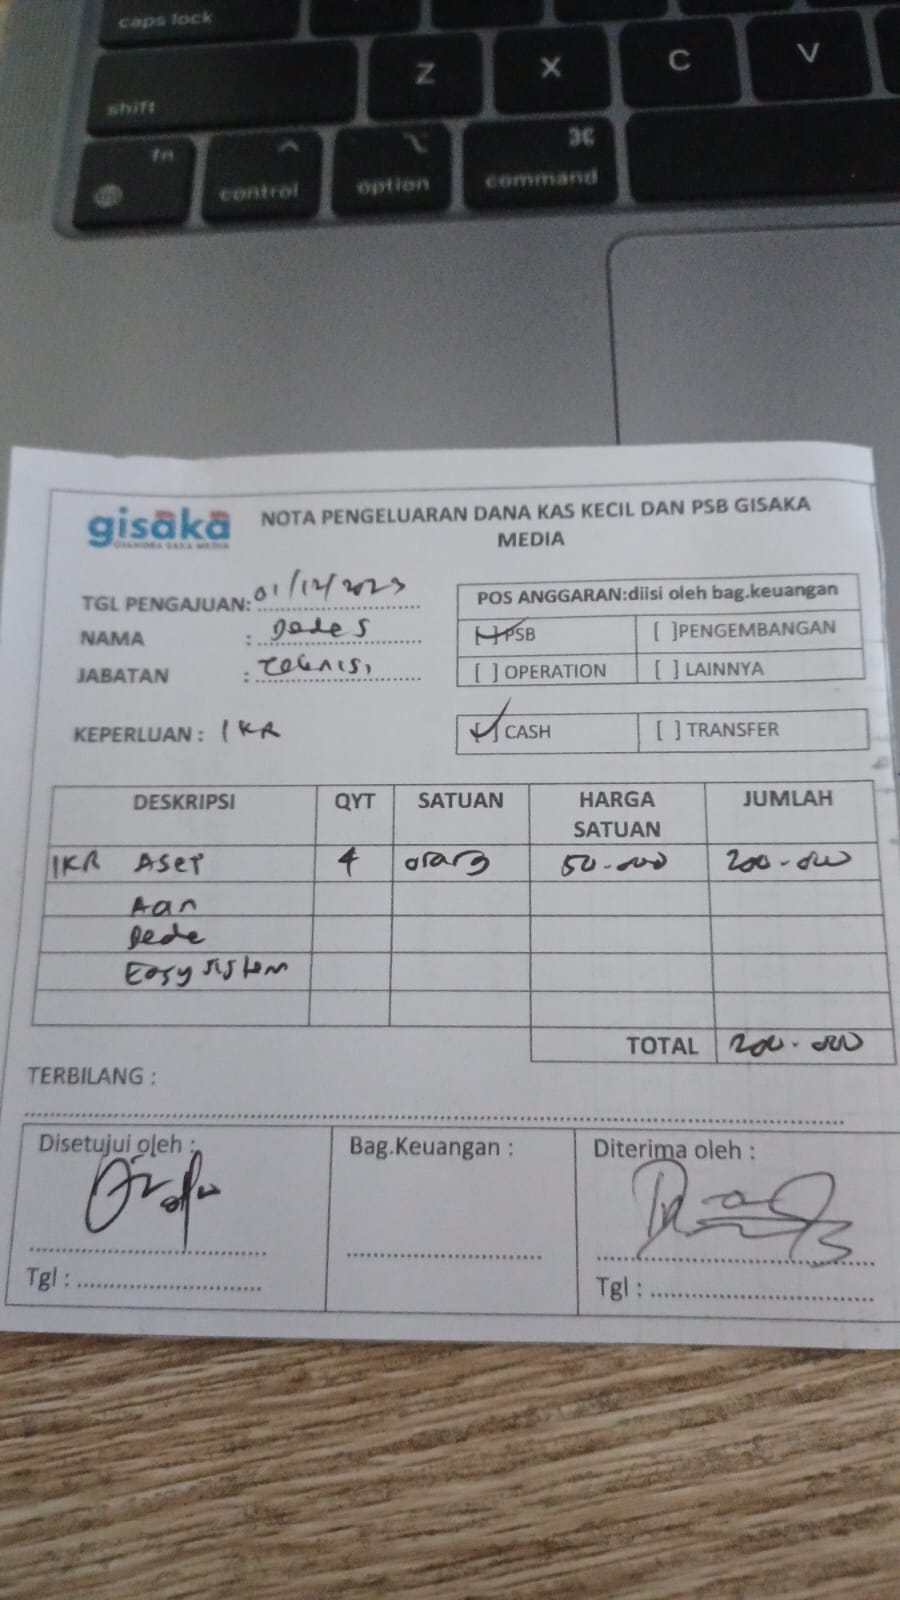 caps lock
Z X C V
shift
fn
control option command
gisaka NOTA PENGELUARAN DANA KAS KECIL DAN PSB GISAKA
GISANDRA SAKA MEDIA
MEDIA
TGL PENGAJUAN: 01/12/2023
NAMA : Dede S
JABATAN : Teknisi
POS ANGGARAN:diisi oleh bag.keuangan
[ ] PSB [ ]PENGEMBANGAN
[ ] OPERATION [ ] LAINNYA
KEPERLUAN : IKR
[✓] CASH [ ] TRANSFER
DESKRIPSI QYT SATUAN HARGA SATUAN JUMLAH
IKR Asep 4 orang 50.000 200.000
Aan
Dede
Easy sistem
TOTAL 200.000
TERBILANG :
Disetujui oleh : Bag.Keuangan : Diterima oleh :
Tgl : Tgl :